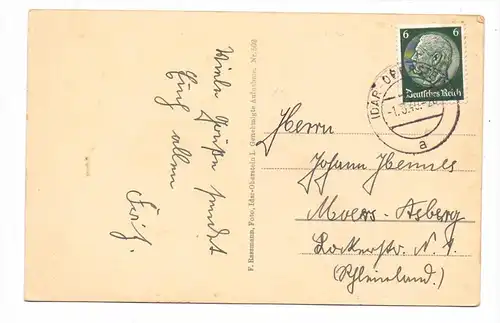 Viele Grüße sendet
Euch allen
Fritz.
F. Rassmann, Foto, Idar-Oberstein I. Genehmigte Aufnahme. Nr. 508
6 6
Deutsches Reich
IDAR-OBERSTEIN
a
Herrn
Johann Hennes
Moers-Asberg
N. 1
(Rheinland.)